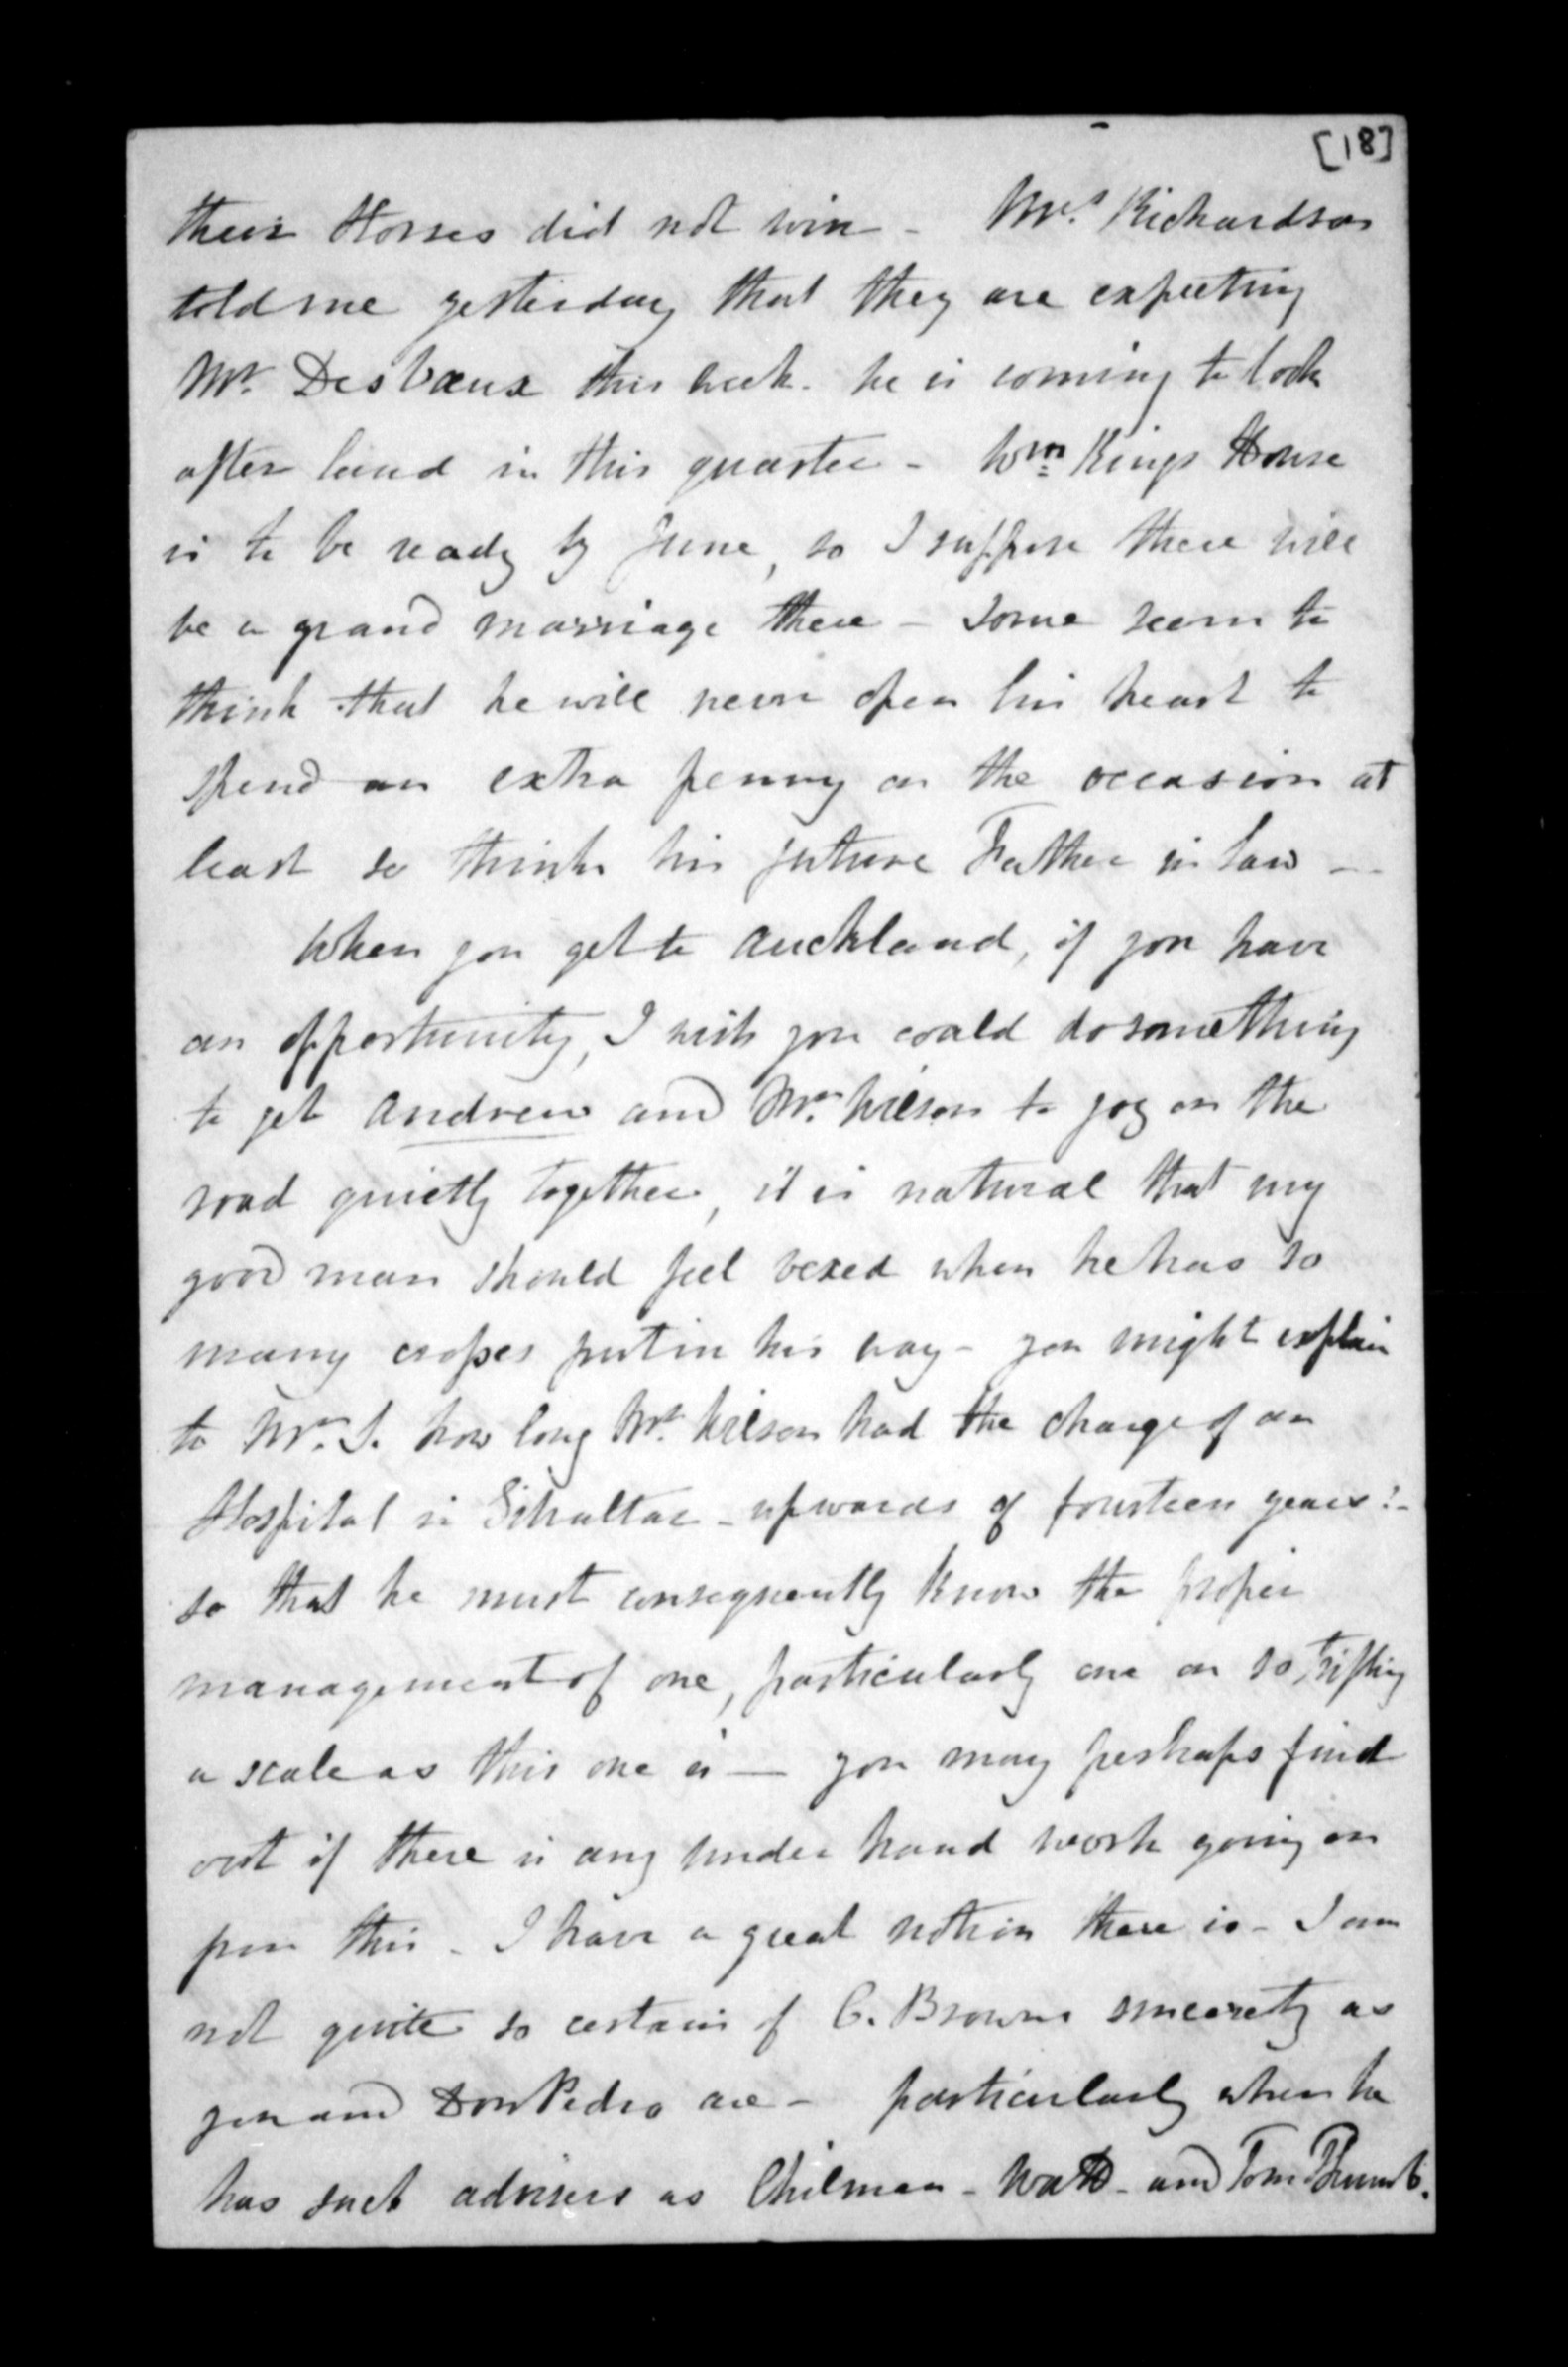 [18]
their Horses did not win - Mrs. Richardson
told me yesterday that they are expecting
Mr. Desvaux this week. he is coming to look
after land in this quarter - Wm Kings House
is to be ready by June, so I suppose there will
be a grand marriage there - some seem to
think that he will never open his heart to
spend an extra penny on the occasion at
least so thinks his future Father in law -
When you get to Auckland, if you have
an opportunity, I wish you could do something
to get Andrew and Mr. Wilson to jog on the
road quietly together, it is natural that my
good man should feel vexed when he has so
many crosses put in his way - you might explain
to Mr. S. how long Mr. Wilson had the charge of an
Hospital in Gibraltar - upwards of fourteen years! -
so that he must consequently know the proper
management of one, particularly one on so trifling
a scale as this one is — you may perhaps find
out if there is any under hand work going on
from this - I have a great notion there is - I am
not quite so certain of C. Browns sincerety as
you and Don Pedro are - particularly when he
has such advisers as Chilman - Watt - and Tom Thumb.